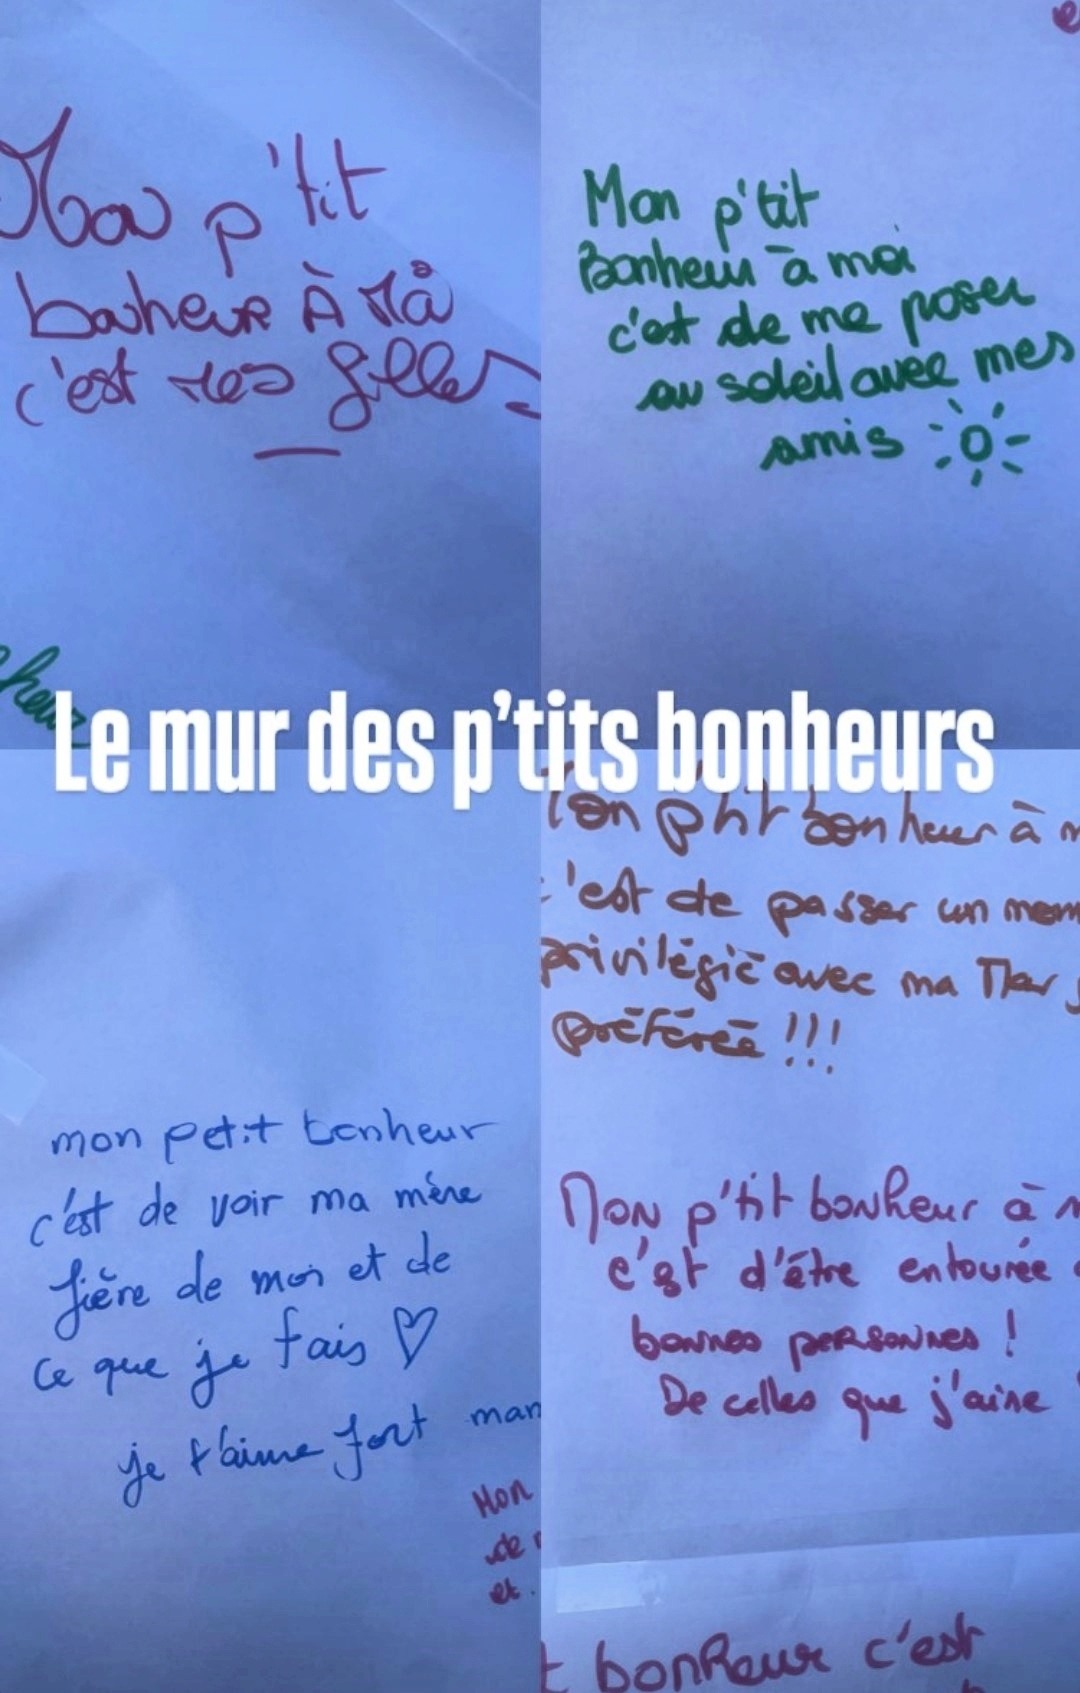 Mon p'tit
bonheur À Moi
c'est mes filles
Mon p'tit
Bonheur à moi
c'est de me poser
au soleil avec mes
amis
heur
Le mur des p'tits bonheurs
Mon p'tit bonheur à m
c'est de passer un mom
privilégié avec ma
préférée !!!
mon petit bonheur
c'est de voir ma mère
fière de moi et de
ce que je fais ♡
je t'aime fort mam
Mon
de
et
Mon p'tit bonheur à m
c'est d'être entourée
bonnes personnes !
De celles que j'aime
t bonheur c'est